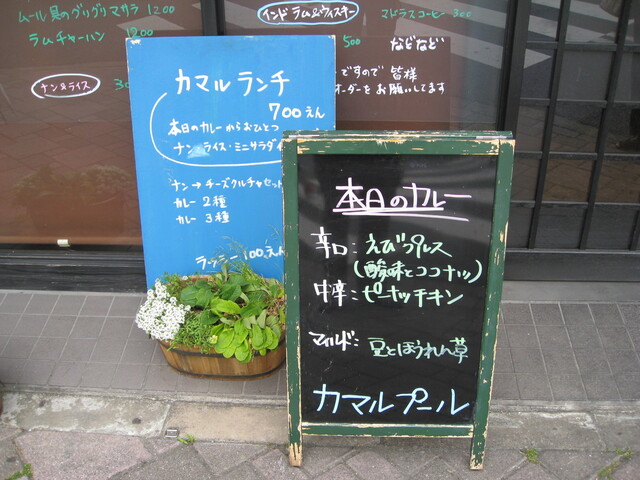 ムール貝のグリグリマサラ 1200
ラムチャーハン 1200
ナン&ライス
インド ラム&ウィスキー
マドラスコーヒー 300
500 などなど
ですので 皆様
オーダーを お願いしてます
カマルランチ
700えん
本日のカレーからおひとつ
ナン・ライス・ミニサラダ
ナン→チーズクルチャセット
カレー 2種
カレー 3種
ラッシー 100えん
本日のカレー
辛口:えびパレス
(酸味とココナッツ)
中辛:ピーナッツチキン
マイルド:豆とほうれん草
カマルプール